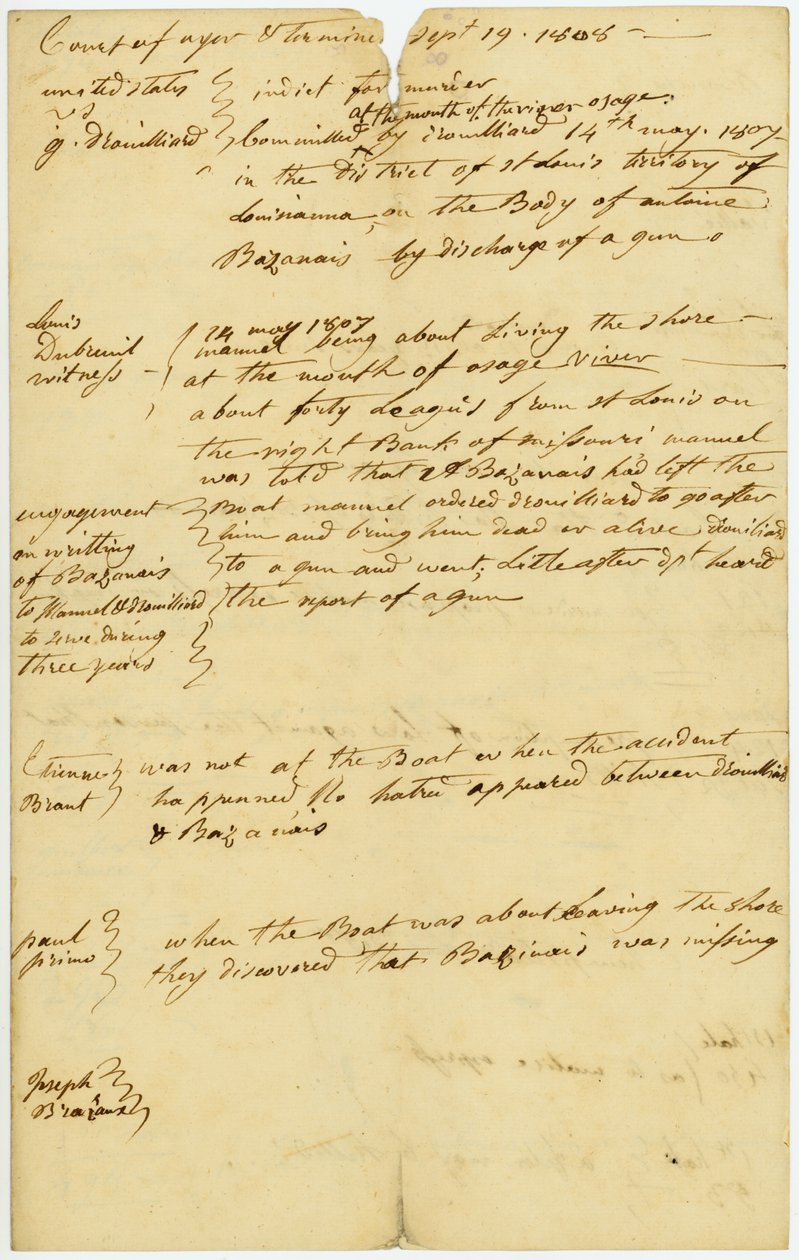 Court of oyer & terminer Sept 19. 1808 -
united states
vs
g. Drouilliard
indict for murder
at the mouth of the river osage.
Committed by Drouilliard 14th may. 1807
in the District of st Louis territory of
Louisianna, on the Body of antoine
Bazanais by discharge of a gun
Louis
Dubreuil
witness -
14 may 1807
manuel being about Living the shore -
at the mouth of osage river
about forty Leagues from st Louis on
the right Bank of missouri manuel
was told that A Bazanais had left the
Boat manuel ordered drouilliard to go after
him and bring him dead or alive Drouilliard
to a gun and went; Little after dpt heard
the report of a gun
engagement
in writting
of Bazanais
to Manuel & drouilliard
to serve during
three years
Etienne
Brant
was not at the Boat when the accident
happenned, No hatred appeared between Drouilliard
& Bazanais
paul
primo
when the Boat was about Leaving the shore
they discovered that Bazinais was missing
Joseph